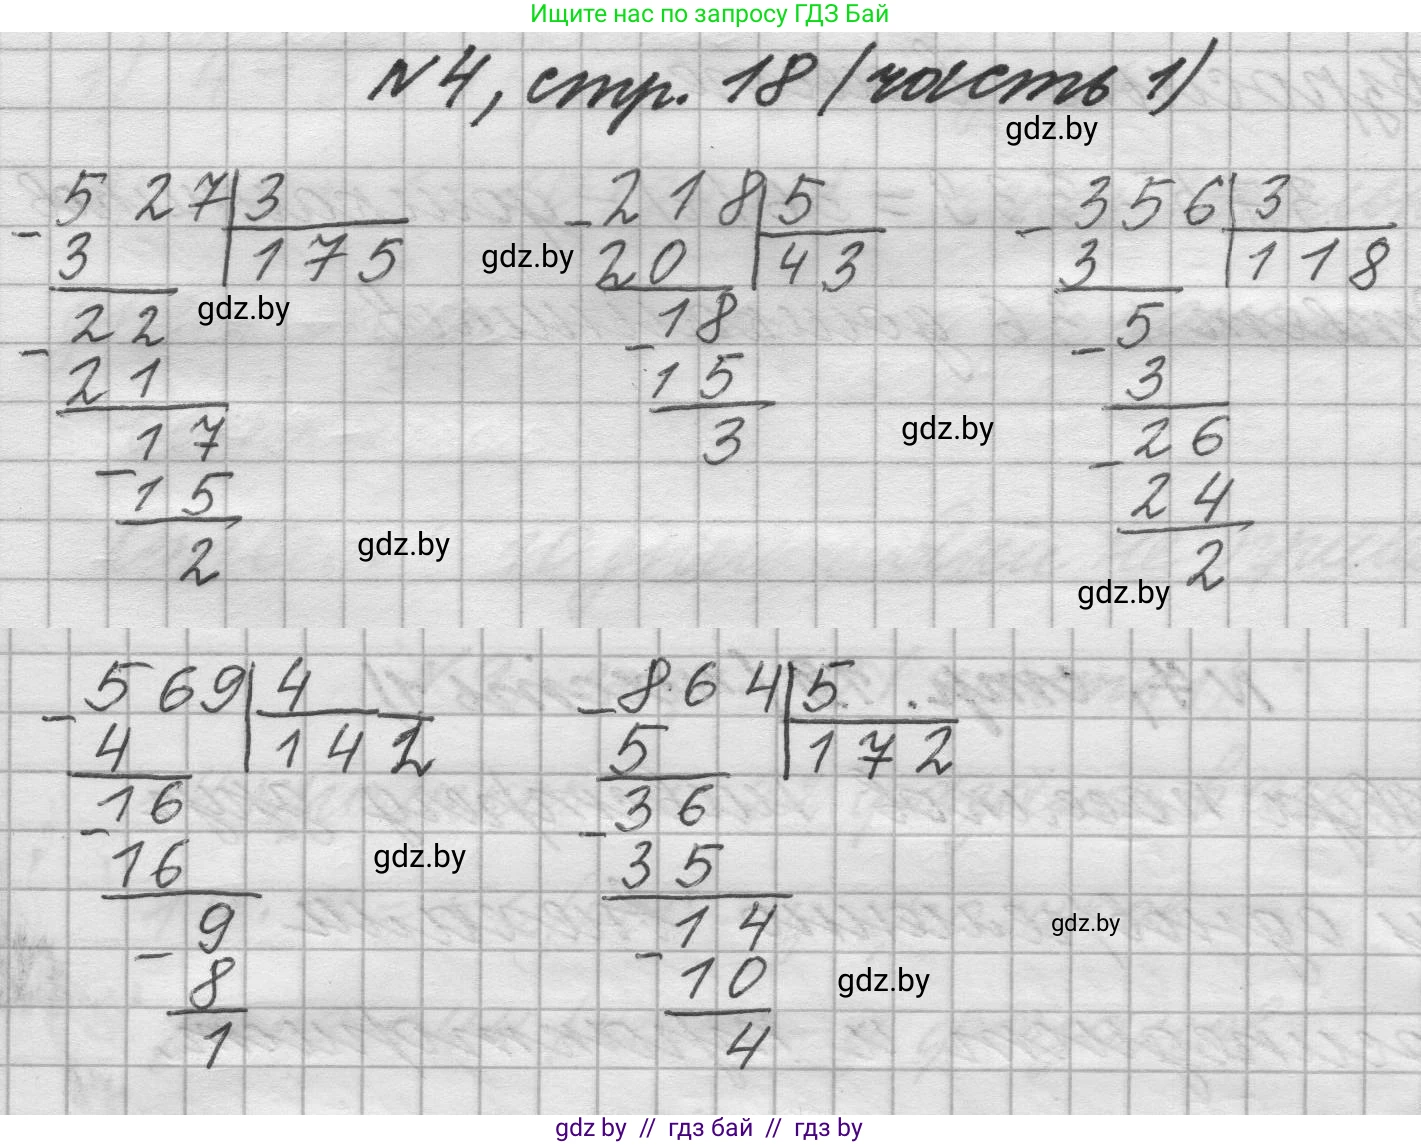 Ищите нас по запросу ГДЗ Бай
N4, стр. 18 (часть 1)
gdz.by
527 3
- 3 175
gdz.by
22
- 21
17
- 15
2
gdz.by
- 218 5
20 43
gdz.by
18
- 15
3
gdz.by
- 356 3
3 118
5
- 3
26
- 24
2
gdz.by
- 569 4
4 142
16
- 16
gdz.by
9
- 8
1
- 864 5
5 172
36
- 35
14
- 10
4
gdz.by
gdz.by
gdz by // гдз бай // гдз by